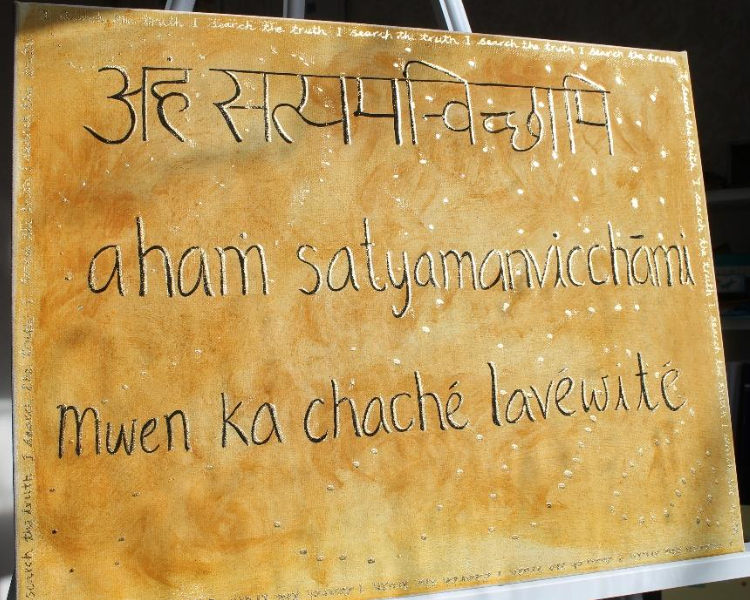 the truth I search the truth I search the truth I search the truth I search the truth
अहं सत्यमन्विच्छामि
ahaṁ satyamanvicchāmi
mwen ka chaché lavéwité
search the truth I search the truth